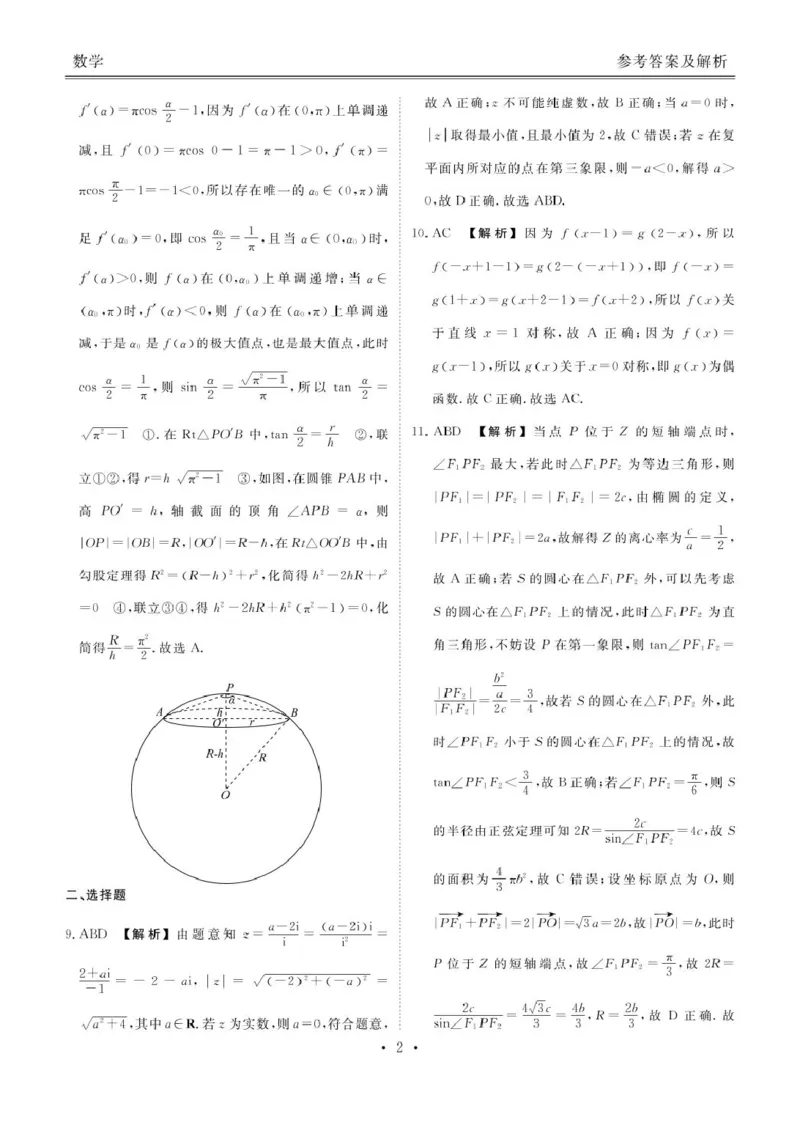 数学
参考答案及解析
f′(α)=πcos α/2−1,因为 f′(α)在(0,π)上单调递
减,且 f′(0)=πcos 0−1=π−1>0,f′(π)=
πcos π/2−1=−1<0,所以存在唯一的 α₀∈(0,π)满
足 f′(α₀)=0,即 cos α₀/2=1/π,且当 α∈(0,α₀)时,
f′(α)>0,则 f(α)在(0,α₀)上单调递增;当 α∈
(α₀,π)时,f′(α)<0,则 f(α)在(α₀,π)上单调递
减,于是 α₀ 是 f(α)的极大值点,也是最大值点,此时
cos α/2=1/π,则 sin α/2=√(π²−1)/π,所以 tan α/2=
√(π²−1) ①.在 Rt△PO′B 中,tan α/2=r/h ②,联
立①②,得 r=h√(π²−1) ③,如图,在圆锥 PAB 中,
高 PO′=h,轴截面的顶角∠APB=α,则
|OP|=|OB|=R,|OO′|=R−h,在Rt△OO′B 中,由
勾股定理得 R²=(R−h)²+r²,化简得 h²−2hR+r²
=0 ④,联立③④,得 h²−2hR+h²(π²−1)=0,化
简得 R/h=π²/2.故选 A.
P
α
A
h
B
O′
r
R-h
R
O
二、选择题
9.ABD 【解析】由题意知 z=(a−2i)/i=(a−2i)i/i²=
(2+ai)/−1=−2−ai,|z|=√((−2)²+(−a)²)=
√(a²+4),其中 a∈R.若 z 为实数,则 a=0,符合题意,
故 A 正确;z 不可能纯虚数,故 B 正确;当 a=0 时,
|z|取得最小值,且最小值为 2,故 C 错误;若 z 在复
平面内所对应的点在第三象限,则−a<0,解得 a>
0,故 D 正确.故选 ABD.
10.AC 【解析】因为 f(x−1)=g(2−x),所以
f(−x+1−1)=g(2−(−x+1)),即 f(−x)=
g(1+x)=g(x+2−1)=f(x+2),所以 f(x)关
于直线 x=1 对称,故 A 正确;因为 f(x)=
g(x−1),所以 g(x)关于 x=0 对称,即 g(x)为偶
函数.故 C 正确.故选 AC.
11.ABD 【解析】当点 P 位于 Z 的短轴端点时,
∠F₁PF₂ 最大,若此时△F₁PF₂ 为等边三角形,则
|PF₁|=|PF₂|=|F₁F₂|=2c,由椭圆的定义,
|PF₁|+|PF₂|=2a,故解得 Z 的离心率为 c/a=1/2,
故 A 正确;若 S 的圆心在△F₁PF₂ 外,可以先考虑
S 的圆心在△F₁PF₂ 上的情况,此时△F₁PF₂ 为直
角三角形,不妨设 P 在第一象限,则 tan∠PF₁F₂=
|PF₂|/|F₁F₂|=(b²/a)/2c=3/4,故若 S 的圆心在△F₁PF₂ 外,此
时∠PF₁F₂ 小于 S 的圆心在△F₁PF₂ 上的情况,故
tan∠PF₁F₂<3/4,故 B 正确;若∠F₁PF₂=π/6,则 S
的半径由正弦定理可知 2R=2c/sin∠F₁PF₂=4c,故 S
的面积为 4/3πb²,故 C 错误;设坐标原点为 O,则
|PF₁→+PF₂→|=2|PO→|=√3a=2b,故|PO→|=b,此时
P 位于 Z 的短轴端点,故∠F₁PF₂=π/3,故 2R=
2c/sin∠F₁PF₂=4√3c/3=4b/3,R=2b/3,故 D 正确.故
• 2 •